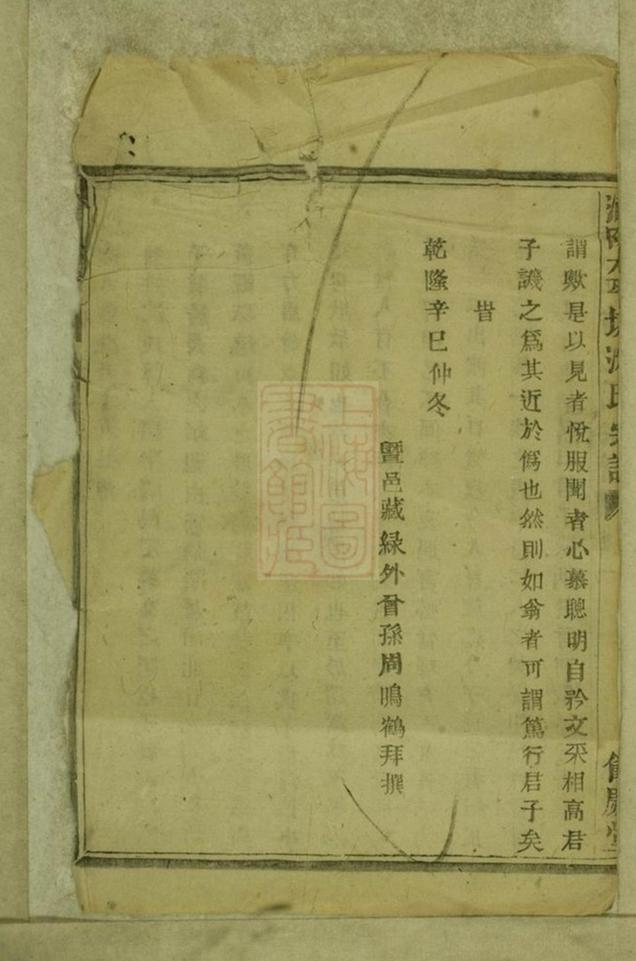 謂歟是以見者悅服聞者心慕聰明自矜文采相高君
子譏之爲其近於僞也然則如翁者可謂篤行君子矣
旹
乾隆辛巳仲冬
曁邑藏綠外曾孫周鳴鶴拜撰
氏宗譜
慶堂
上海圖
書館藏